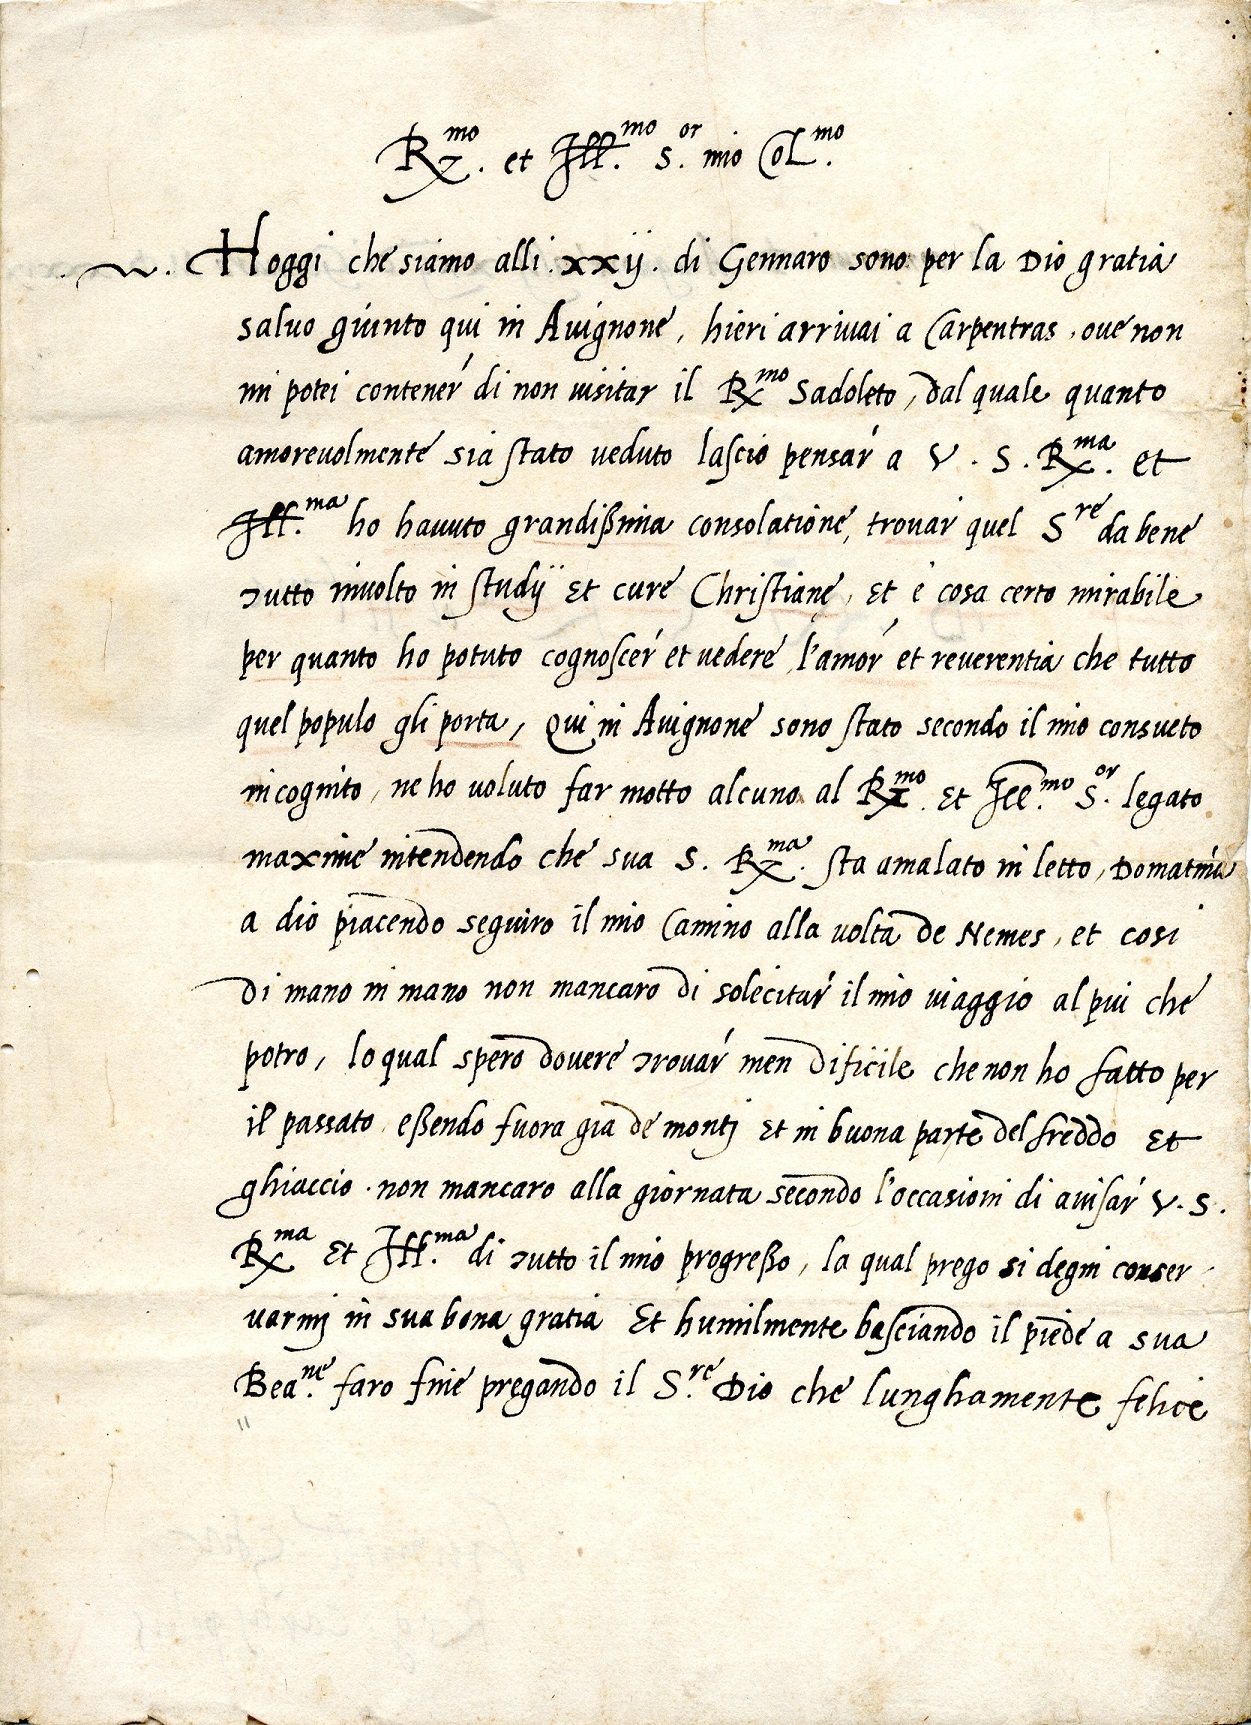 R.mo et Ill.mo S.or mio Col.mo
Hoggi che siamo alli .xxij. di Gennaro sono per la Dio gratia
salvo giunto qui in Avignone, hieri arrivai a Carpentras, ove non
mi potei contener di non visitar il R.mo Sadoleto, dal quale quanto
amorevolmente sia stato veduto lascio pensar a V. S. R.ma et
Ill.ma ho havuto grandißima consolatione, trovar quel S.re da bene
tutto involto in studij et cure Christiane, et è cosa certo mirabile
per quanto ho potuto cognoscer et vedere l'amor et reverentia che tutto
quel populo gli porta, Qui in Avignone sono stato secondo il mio consueto
incognito, ne ho voluto far motto alcuno al R.mo et Ill.mo S.or legato
maxime intendendo che sua S. R.ma sta amalato in letto, Domatina
a dio piacendo seguiro il mio camino alla volta de Nemes, et cosi
di mano in mano non mancaro di solecitar il mio viaggio al piu che
potro, lo qual spero dovere trovar men dificile che non ho fatto per
il passato eßendo fuora gia de monti et in buona parte del freddo et
ghiaccio. non mancaro alla giornata secondo l'occasioni di avisar V. S.
R.ma et Ill.ma di tutto il mio progreßo, la qual prego si degni conser
varmi in sua bona gratia Et humilmente basciando il piede a sua
Bea.ne faro fine pregando il S.re Dio che lunghamente felice